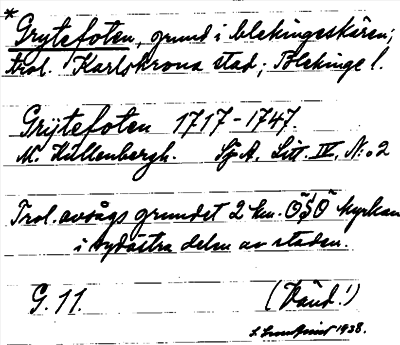 *Grytefoten, grund i blekingeskären;
trol. Karlskrona stad; Blekinge l.
Grÿtefoten 1717-1747.
M. Kullenbergh. Sj. A. Litt. IV, N:o 2
Trol. avsågs grundet 2 km. OSO kyrkan
i sydöstra delen av staden.
G. 11. (Vänd!)
1938.